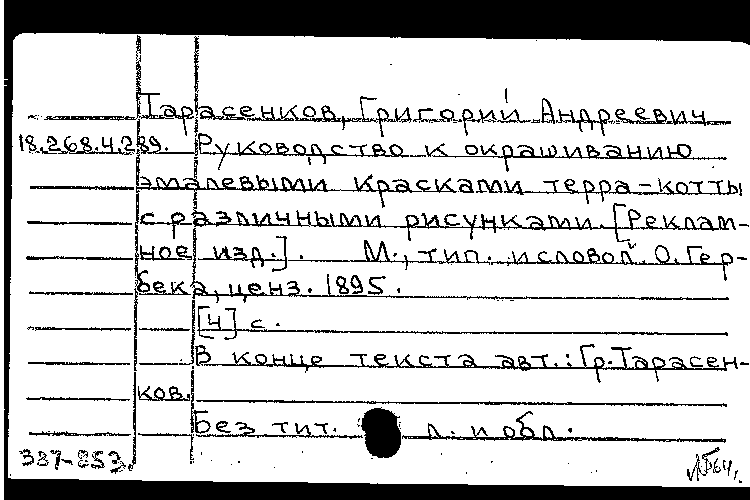 Тарасенков, Григорий Андреевич
18.268.4.289. Руководство к окрашиванию
эмалевыми красками терра-котты
с различными рисунками. [Реклам-
ное изд.]. М., тип. и словол. О. Гер-
бека, ценз. 1895.
[4] с.
В конце текста авт.: Гр. Тарасен-
ков.
Без тит. л. и обл.
337-853.